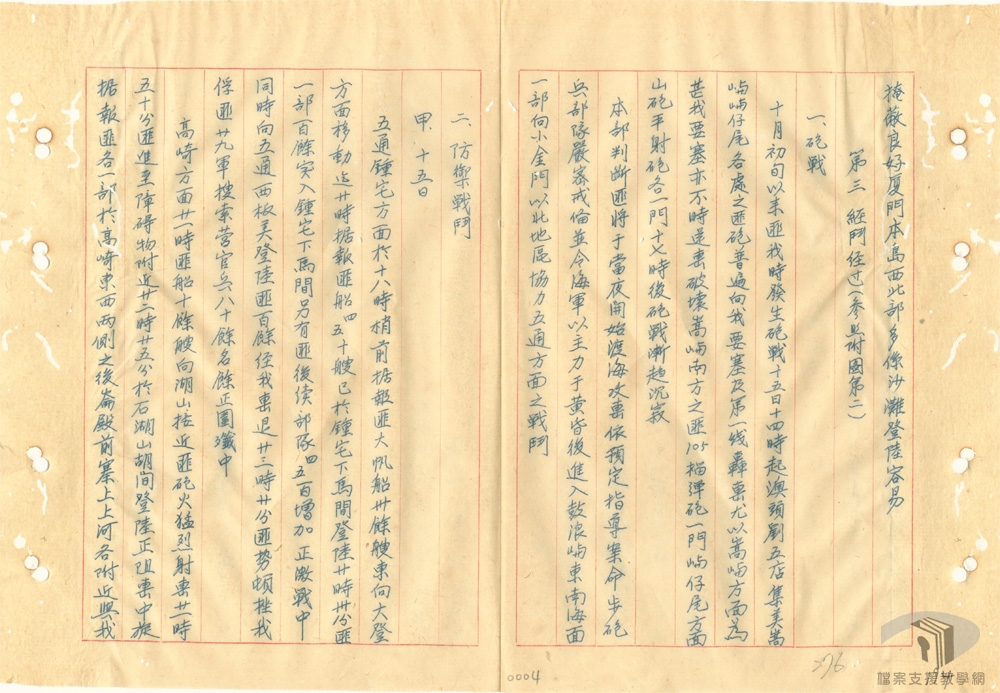 掩蔽良好厦門本島西北部多係沙灘登陸容易
第三 經鬥经过(参照附圖第二)
一、砲戰
十月初旬以来匪我時發生砲戰十五日十四時起澳頭劉五店集美嵩
屿嶼仔尾各處之匪砲普遍向我要塞及第一线轟击尤以嵩嶼方面為
甚我要塞亦不時还击破壞嵩嶼南方之匪105榴弹砲一門嶼仔尾方面
山砲平射砲各一門十七時後砲戰漸趋沉寂
本部判断匪将于當夜開始渡海攻击依預定指导案命步砲
兵部隊嚴密戒備並令海軍以主力于黄昏後進入鼓浪嶼東南海面
一部向小金門以北地區協力五通方面之戰鬥
二、防禦戰鬥
甲、十五日
五通鍾宅方面於十八時稍前据報匪大帆船卅餘艘東向大登
方面移動迄廿時据報匪船四五十艘已於鍾宅下馬間登陸廿時卅分匪
一部百餘突入鍾宅下馬間另有匪後续部隊四五百增加正激戰中
同時向五通西板美登陸匪百餘经我击退廿三時廿分匪势頓挫我
俘匪廿九軍搜索营官兵八十餘名餘正圍殲中
高崎方面廿一時匪船十餘艘向湖山拉近匪砲火猛烈射击廿一時
五十分匪進至障碍物附近廿二時廿五分於石湖山胡间登陸正阻击中旋
据報匪各一部於高崎東西两側之後崙殿前寨上上河各附近與我
0004
276
檔案支援教學網